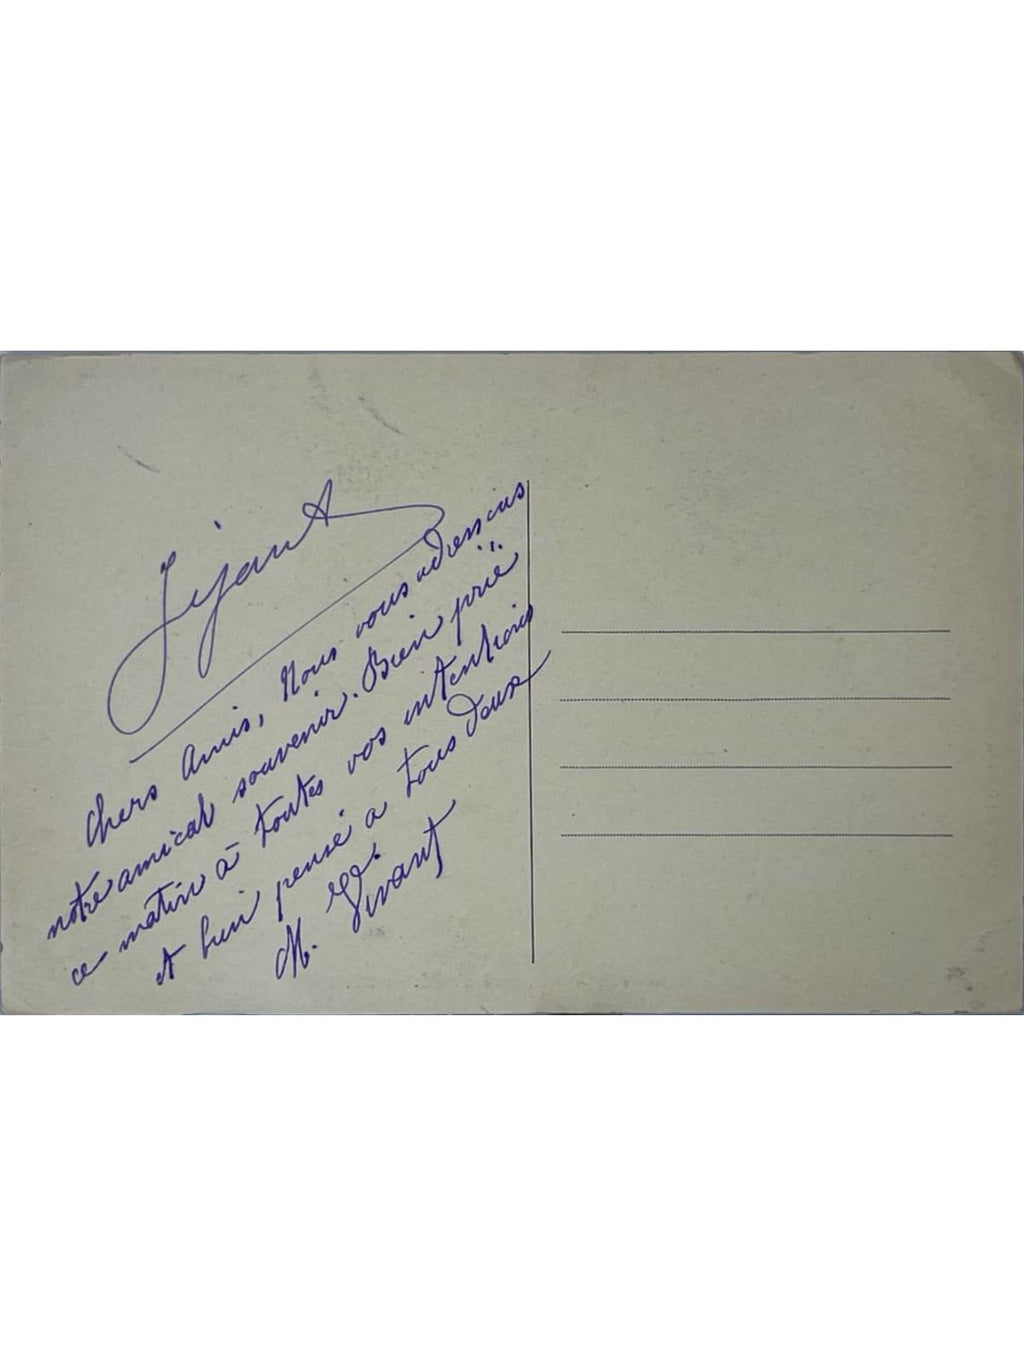 Chers Amis, Nous vous adressons
notre amical souvenir. Bien prié
ce matin à toutes vos intentions
et bien pensé a tous deux
M.